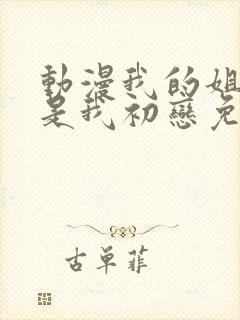 動漫我的姐
是我初戀免
古單菲